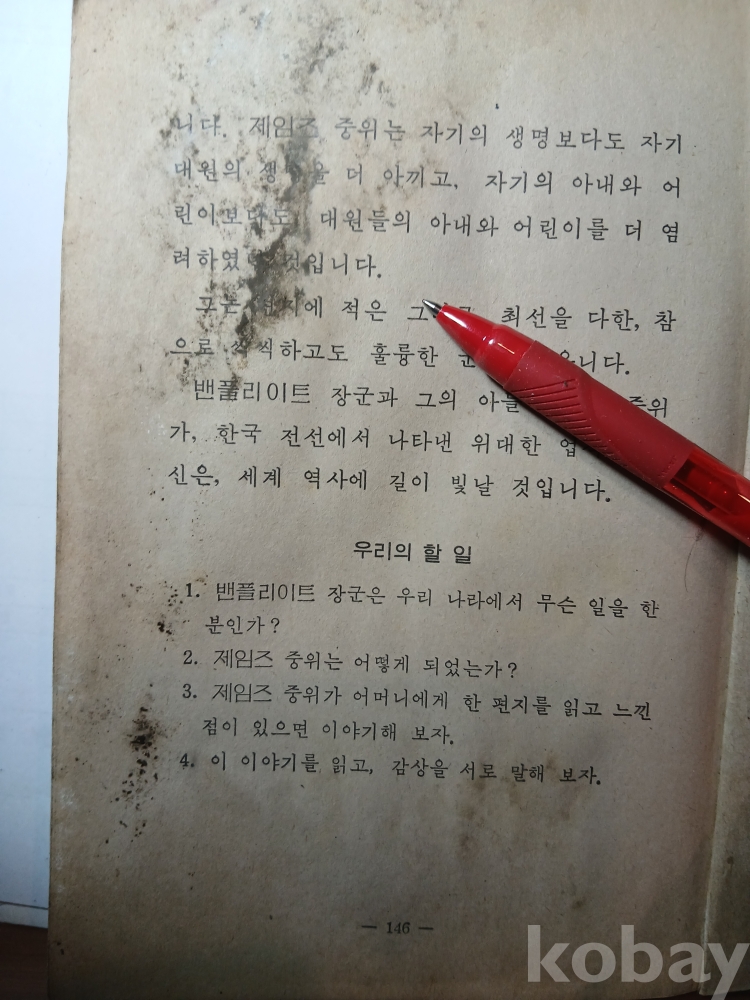 니다. 제임즈 중위는 자기의 생명보다도 자기
대원의 을 더 아끼고, 자기의 아내와 어
린이보다도, 대원들의 아내와 어린이를 더 염
려하였 것입니다.
적은 최선을 다한, 참
으로 훌륭한
밴플리이트 장군과 그의
가, 한국 전선에서 나타낸 위대한
신은, 세계 역사에 길이 빛날 것입니다.
우리의 할 일
1. 밴플리이트 장군은 우리 나라에서 무슨 일을 한
분인가?
2. 제임즈 중위는 어떻게 되었는가?
3. 제임즈 중위가 어머니에게 한 편지를 읽고 느낀
점이 있으면 이야기해 보자.
4. 이 이야기를 읽고, 감상을 서로 말해 보자.
— 146 —
kobay